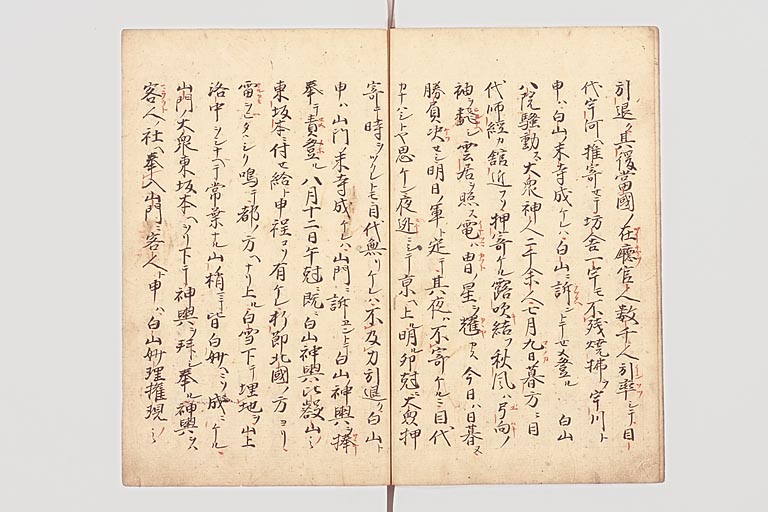 引退ノ其後當國ノ在廳官人数千人引率シテ目
代宇河ヘ推寄セテ坊舎一宇モ不残焼拂フ宇川ト
申ハ白山末寺成ケレハ白山ニ訴ントテ 登ル 白山
八院騒動ス大衆神人二千余人七月九日暮方ニ目
代師經カ舘近フソ押寄ケル露吹結フ秋風ハ弓向ノ
袖ヲ翻シ雲居ヲ照ス電ハ甲ノ星ヲ耀カス今日ハ日暮ヌ
勝負決セシ明日ノ軍ト定テ其夜ハ不寄ケルニ目代
カナシトヤ思ケン夜逃ニシテ京ヘ上ル明ル卯尅ニ大衆押
寄テ時ヲツクレトモ目代無リケレハ不及力引退ク白山ト
申ハ山門ノ末寺成ケレハ山門ニ訴ントテ白山神輿ヲ捧
奉テ責登ル八月十二日午尅ニ既ニ白山神輿比叡山ノ
東坂本ニ付セ給ト申程コソ有ケレ折節北國ノ方ヨリ
雷ヲヒタヽシク鳴テ都ノ方ヘナリ上ル白雪下テ埋地ヲ山上
洛中ヲシナヘテ常葉ナル山梢ニテ皆白妙ニソ成ニケル
山門ノ大衆東坂本ヘヲリ下テ神輿ヲ拜シ奉ル神輿ヲハ
客人社ヘ奉入山門ニ客人ト申ハ白山妙理権現ニ